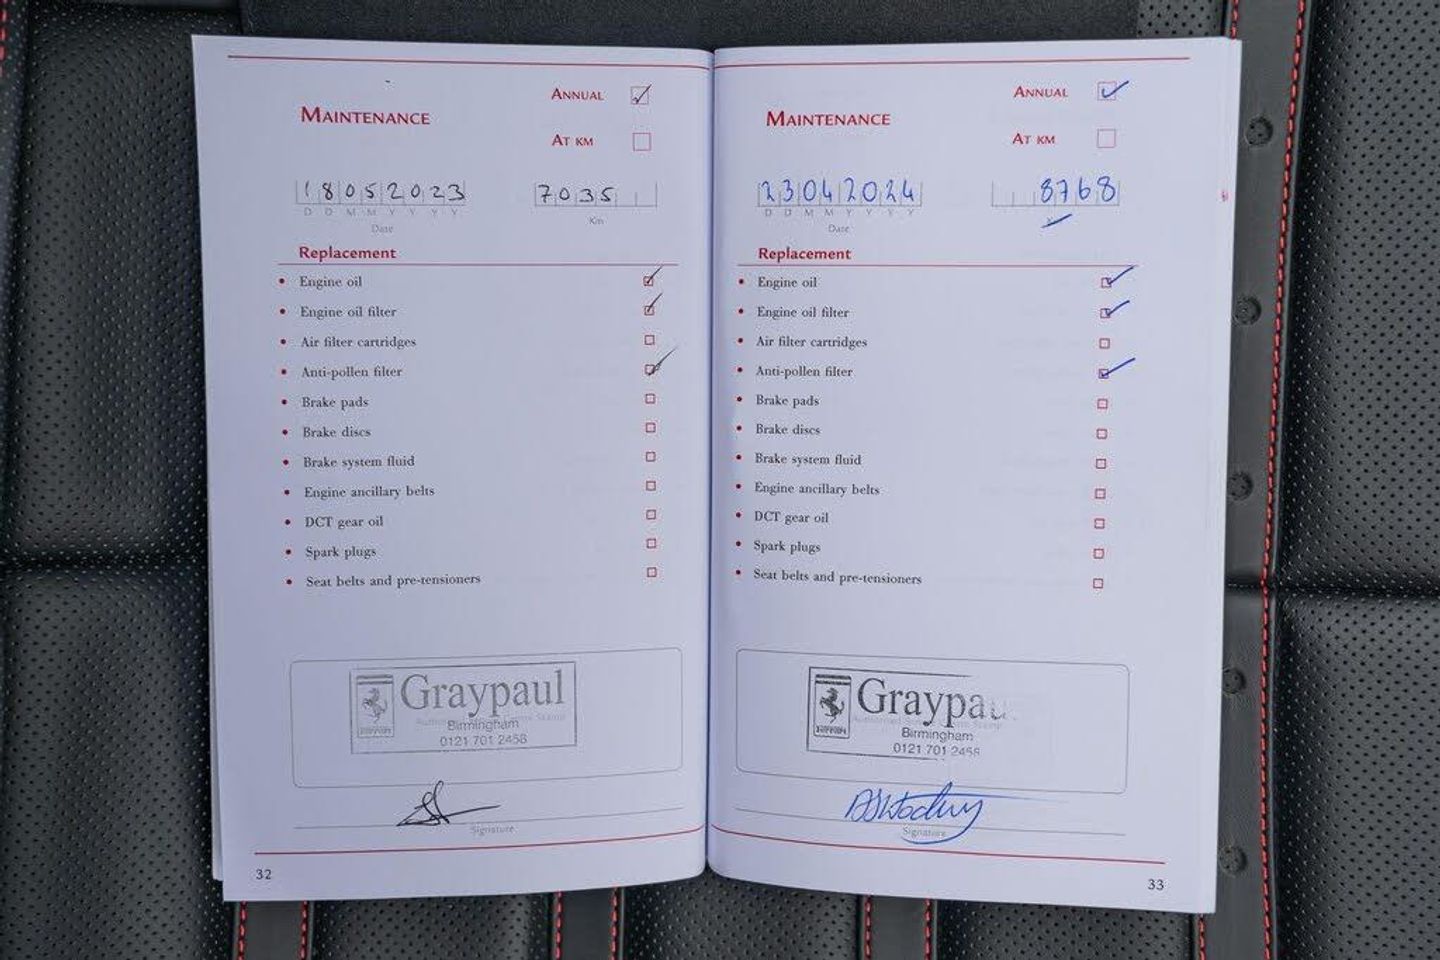 ANNUAL
MAINTENANCE
AT KM
18052023 7035
D D M M Y Y Y Y Km
Date
Replacement
• Engine oil
• Engine oil filter
• Air filter cartridges
• Anti-pollen filter
• Brake pads
• Brake discs
• Brake system fluid
• Engine ancillary belts
• DCT gear oil
• Spark plugs
• Seat belts and pre-tensioners
Graypaul
Ferrari
Birmingham
0121 701 2458
Signature
32
ANNUAL
MAINTENANCE
AT KM
23042024 8768
D D M M Y Y Y Y
Date
Replacement
• Engine oil
• Engine oil filter
• Air filter cartridges
• Anti-pollen filter
• Brake pads
• Brake discs
• Brake system fluid
• Engine ancillary belts
• DCT gear oil
• Spark plugs
• Seat belts and pre-tensioners
Graypau
Ferrari
Birmingham
0121 701 2458
Signature
33